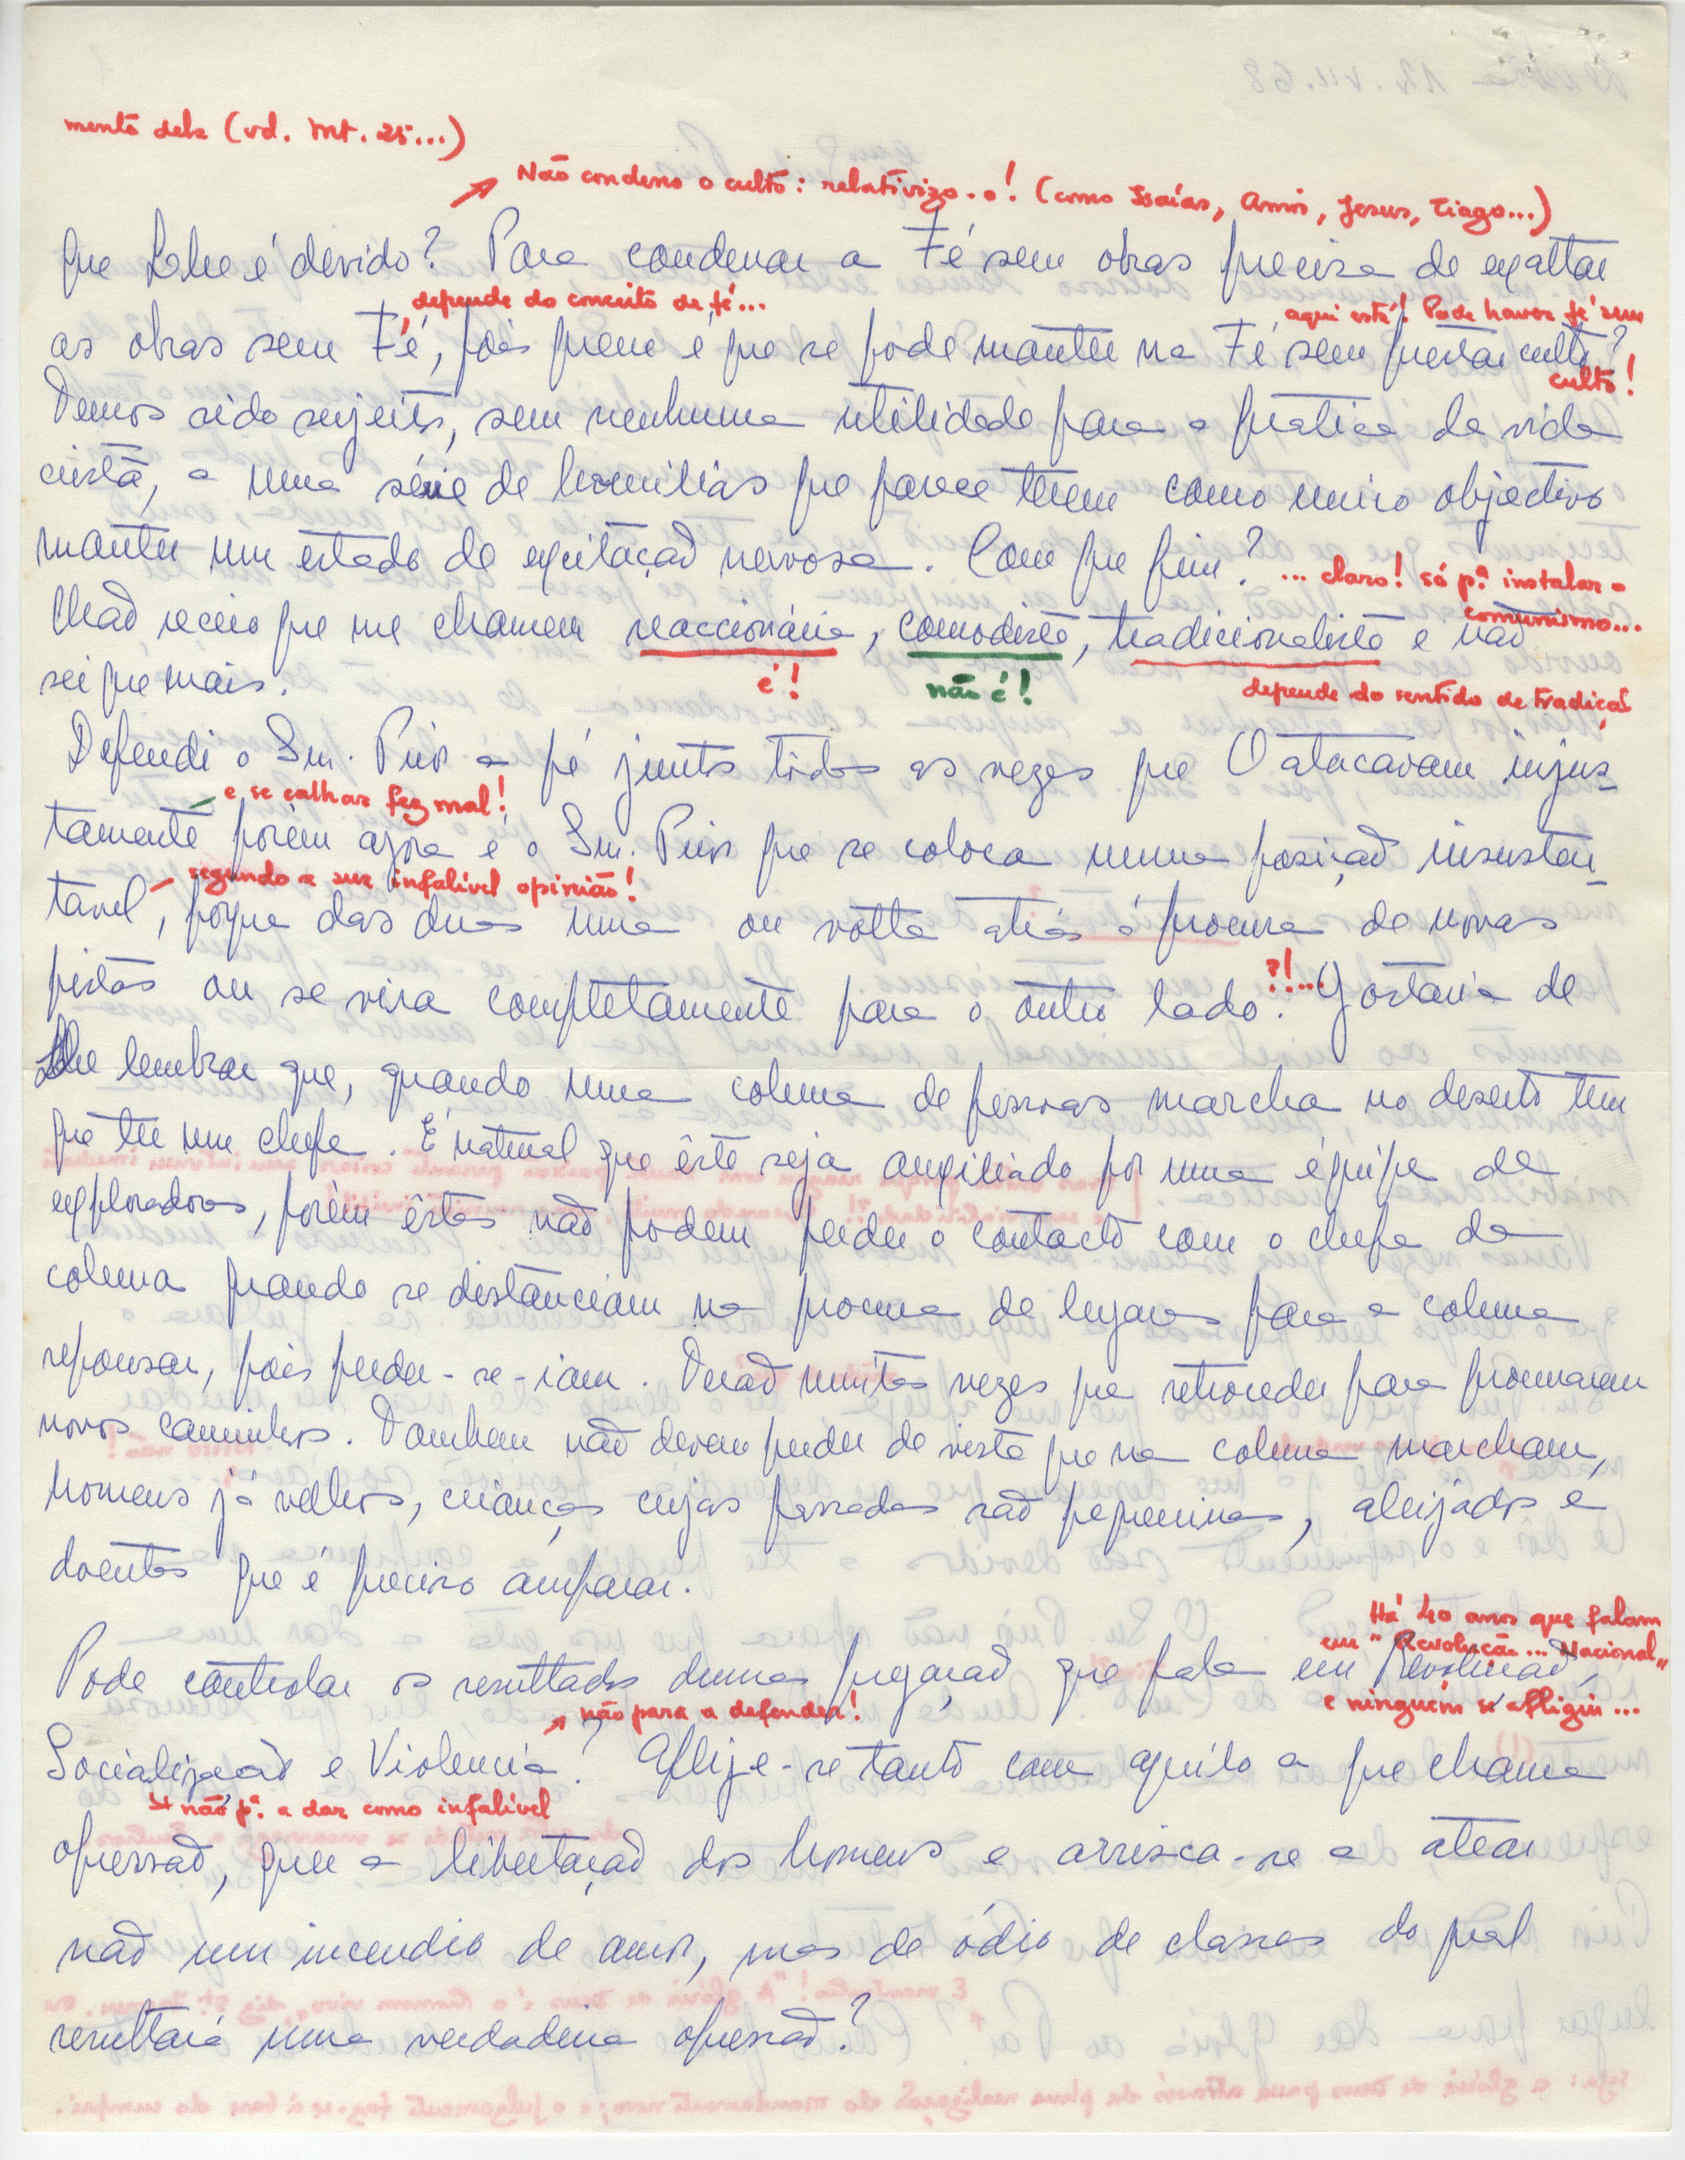 mento dela (vd. Mt. 25...)
Não condeno o culto: relativizo-o! (como Isaías, Amós, Jesus, Tiago...)
que Lhe é devido? Para condenar a Fé sem obras precisa de exaltar
depende do conceito de fé...
aqui está! Pode haver fé sem
as obras sem Fé, pois quem é que se póde manter na Fé sem prestar culto?
culto!
Temos sido sujeitos, sem nenhuma utilidade para a prática da vida
cristã, a uma série de homilias que parece terem como unico objectivo
manter um estado de exitação nervosa. Com que fim?
... claro! só pª. instalar o
comunismo...
Não receio que me chamem reaccionária, comodista, tradicionalista e não
sei que mais.
é!
não é!
depende do sentido de tradição
Defendi o Snr. Prior a pé juntos todas as vezes que O atacavam injus-
e se calhar fez mal!
tamente porém agora é o Snr. Prior que se coloca numa posição insusten-
segundo a sua infalível opinião!
tavel, porque das duas uma ou vólta atrás á procura de novas
pistas ou se vira completamente para o outro lado. Gostaria de
?!...
Lhe lembrar que, quando uma coluna de pessoas marcha no deserto tem
que ter um chefe. É natural que êste seja auxiliado por uma équipe de
exploradores, porém êstes não podem perder o contacto com o chefe da
coluna quando se distanciam na procura de lugares para a coluna
repousar, pois perder-se-iam. Terão muitas vezes que retroceder para procurarem
novos caminhos. Tambem não devem perder de vista que na coluna marcham,
homens já velhos, crianças cujas passadas são pequeninas, aleijados e
doentes que é preciso amparar.
Há 40 anos que falam
em "Revolução... Nacional"
Pode controlar os resultados duma pregação que fala em Revolução,
não para a defender!
e ninguém se afligiu...
Socialização e Violencia? Aflije-se tanto com aquilo a que chama
não pª. a dar como infalível
opressão, quer a libertação dos homens e arrisca-se a atear
não um incendio de amor, mas de ódio de classes do qual
resultará uma verdadeira opressão?